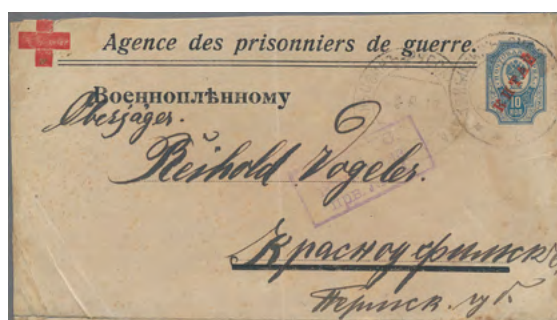 Agence des prisonniers de guerre.
Военноплѣнному
Oberjäger.
Reihold Vogeler.
Красноуфимскъ
Пермск. губ.
КИТАЙ
10
КОП